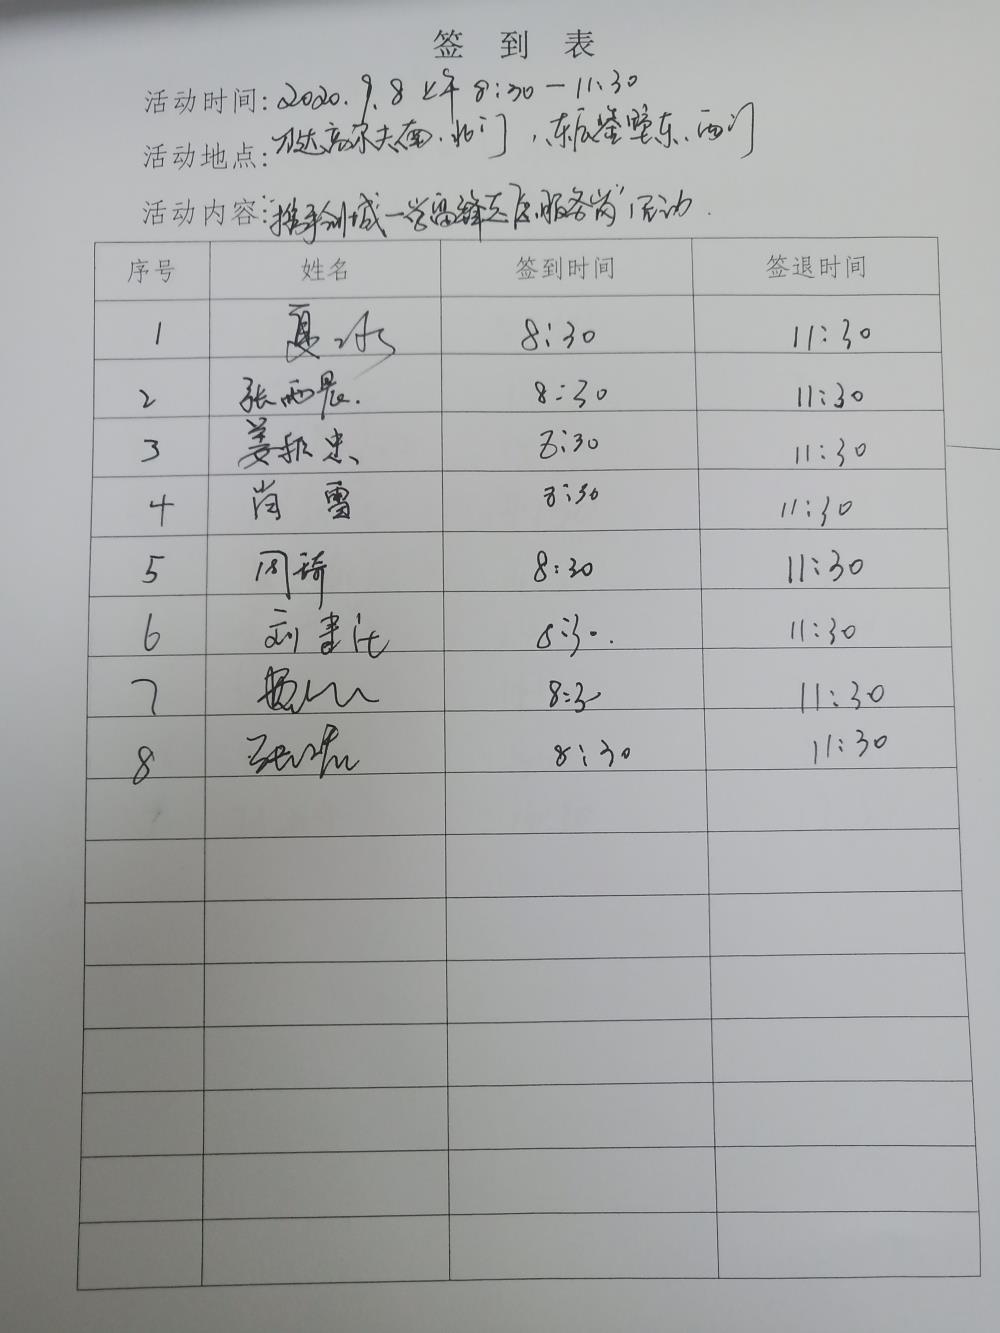 签 到 表
活动时间: 2020.9.8 上午 8:30-11:30
活动地点: 万达高尔夫南.北门,东辰墅东.西门
活动内容: "携手创城—学雷锋志愿服务岗"活动.
序号 姓名 签到时间 签退时间
1 夏冰 8:30 11:30
2 张西晨. 8:30 11:30
3 姜振忠 8:30 11:30
4 肖雪 8:30 11:30
5 周琦 8:30 11:30
6 刘 8:30. 11:30
7 8:30 11:30
8 张 8:30 11:30